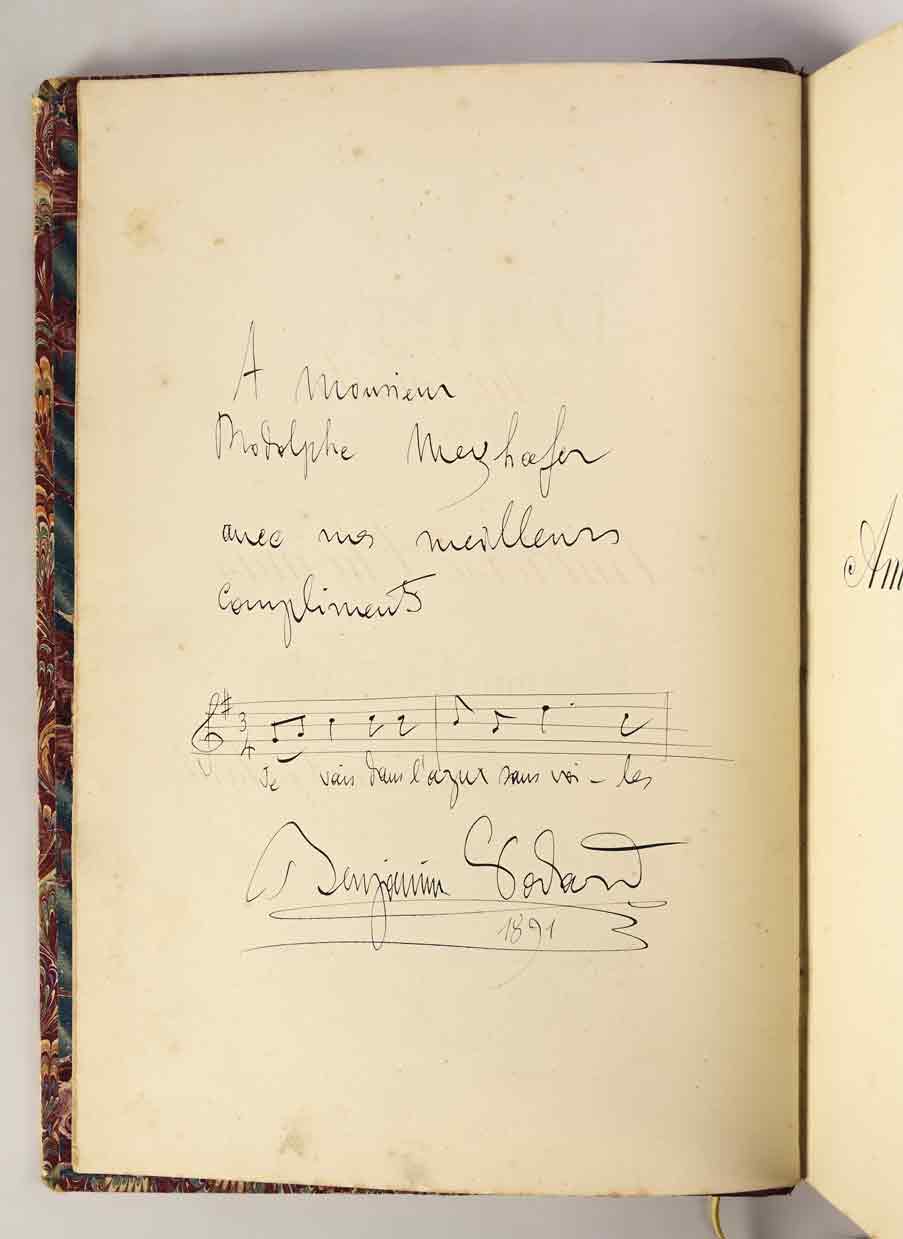 A Monsieur
Rodolphe Meyhoefer
avec mes meilleurs
compliments
3
4
Je vais dans l'azur sans voi - les
Benjamin Godard
1891
Am